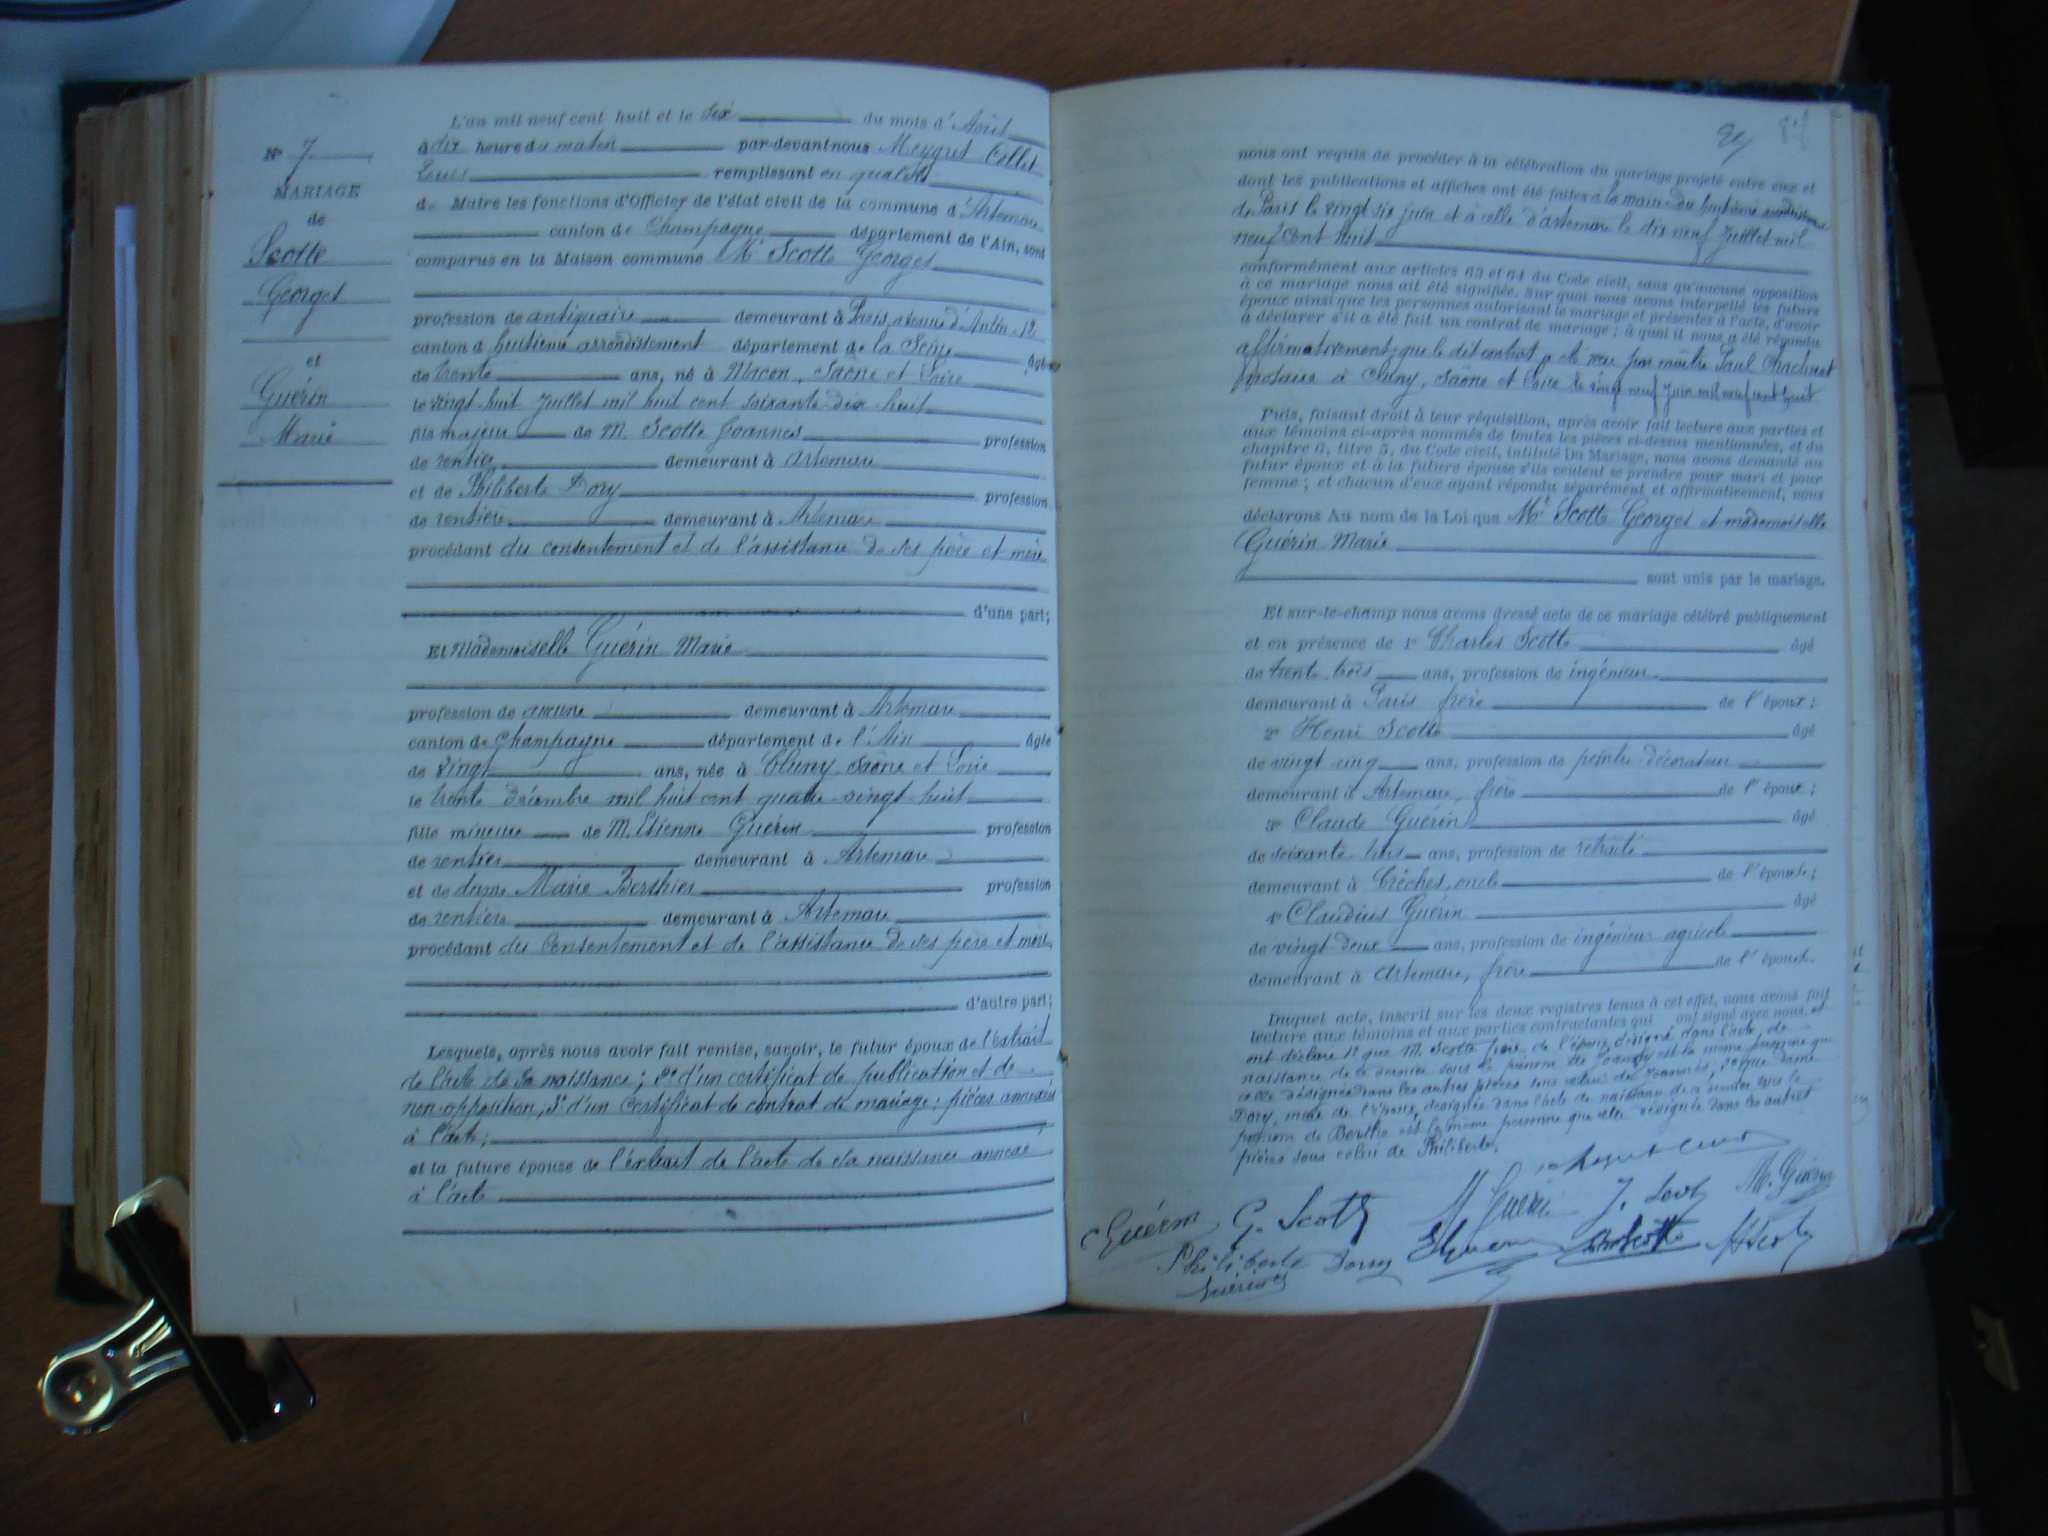 Nº 7
MARIAGE
de
Scotte
Georges
et
Guérin
Marie
L'an mil neuf cent huit et le six du mois d'Août
à dix heure du matin par-devant nous Meygret Collet
Louis remplissant en qualité
de Maire les fonctions d'Officier de l'état civil de la commune d'Artemare
canton de Champagne département de l'Ain, sont
comparus en la Maison commune Mr Scotte Georges
profession de antiquaire demeurant à Paris avenue d'Antin 12
canton d huitième arrondissement département de la Seine âgé
de trente ans, né à Macon, Saône et Loire
le vingt huit Juillet mil huit cent soixante dix huit
fils majeur de M. Scotte Joannes profession
de rentier demeurant à Artemare
et de Philiberte Dory profession
de rentière demeurant à Artemare
procédant du consentement et de l'assistance de ses père et mère
d'une part;
Et Mademoiselle Guérin Marie
profession de aucune demeurant à Artemare
canton de Champagne département de l'Ain âgée
de vingt ans, née à Cluny Saône et Loire
le trente décembre mil huit cent quatre vingt huit
fille mineure de M. Etienne Guérin profession
de rentier demeurant à Artemare
et de dame Marie Berthier profession
de rentière demeurant à Artemare
procédant du consentement et de l'assistance de ses père et mère
d'autre part;
Lesquels, après nous avoir fait remise, savoir, le futur époux de l'extrait
de l'acte de sa naissance; 2º d'un certificat de publication et de
non opposition, 3º d'un certificat de contrat de mariage; pièces annexées
à l'acte;
et la future épouse de l'extrait de l'acte de sa naissance annexé
à l'acte
nous ont requis de procéder à la célébration du mariage projeté entre eux et
dont les publications et affiches ont été faites à la mairie du huitième arrondissement
de Paris le vingt six juin et à celle d'Artemare le dix neuf Juillet mil
neuf cent huit
conformément aux articles 63 et 64 du Code civil, sans qu'aucune opposition
à ce mariage nous ait été signifiée. Sur quoi nous avons interpellé les futurs
époux ainsi que les personnes autorisant le mariage et présentes à l'acte, d'avoir
à déclarer s'il a été fait un contrat de mariage; à quoi il nous a été répondu
affirmativement, que le dit contrat a été reçu par maître Paul
notaire à Cluny, Saône et Loire le vingt neuf Juin mil neuf cent huit
Puis, faisant droit à leur réquisition, après avoir fait lecture aux parties et
aux témoins ci-après nommés de toutes les pièces ci-dessus mentionnées, et du
chapitre 6, titre 5, du Code civil, intitulé Du Mariage, nous avons demandé au
futur époux et à la future épouse s'ils veulent se prendre pour mari et pour
femme; et chacun d'eux ayant répondu séparément et affirmativement, nous
déclarons Au nom de la Loi que Mr Scotte Georges et mademoiselle
Guérin Marie
sont unis par le mariage.
Et sur-le-champ nous avons dressé acte de ce mariage célébré publiquement
et en présence de 1º Charles Scotte âgé
de trente trois ans, profession de ingénieur
demeurant à Paris frère de l'époux;
2º Henri Scotte âgé
de vingt cinq ans, profession de peintre décorateur
demeurant à Artemare, frère de l'époux;
3º Claude Guérin âgé
de soixante trois ans, profession de retraité
demeurant à Crèches, oncle de l'épouse;
4º Claudius Guérin âgé
de vingt deux ans, profession de ingénieur agricole
demeurant à Artemare, frère de l'épouse.
Duquel acte, inscrit sur les deux registres tenus à cet effet, nous avons fait
lecture aux témoins et aux parties contractantes qui ont signé avec nous, et
ont déclaré 1º que M. Scotte père de l'époux désigné dans l'acte de
naissance de ce dernier sous le prénom de est la même personne que
celle désignée dans les autres pièces sous celui de Joannes, 2º que dame
Dory, mère de l'époux, désignée dans l'acte de naissance de ce dernier sous le
prénom de Berthe est la même personne que celle désignée dans les autres
pièces sous celui de Philiberte.
Guérin G. Scotte M. Guérin
Philiberte Dory